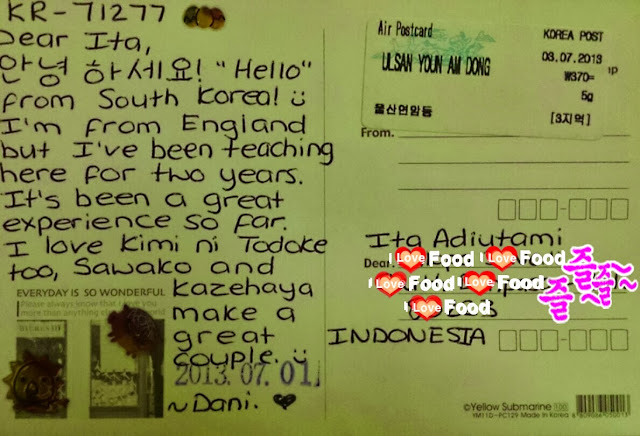 KR-71277
Dear Ita,
안녕 하세요! "Hello"
from South Korea! ü
I'm from England
but I've been teaching
here for two years.
It's been a great
experience so far.
I love Kimi ni Todoke
too, Sawako and
Kazehaya
make a
great
couple. ü
2013.07.01
~Dani. ♥
EVERYDAY IS SO WONDERFUL
Please always know that I love you
more than anything else
Air Postcard
KOREA POST
ULSAN YOUN AM DONG
03.07.2013
₩370=
5g
울산연암동
[3지역]
From.
Ita Adiutami
Dear.
I Love Food I Love Food
I Love Food I Love Food
I Love Food
즐즐~
즐~
INDONESIA
©Yellow Submarine 100
YM110-PC129 Made in Korea